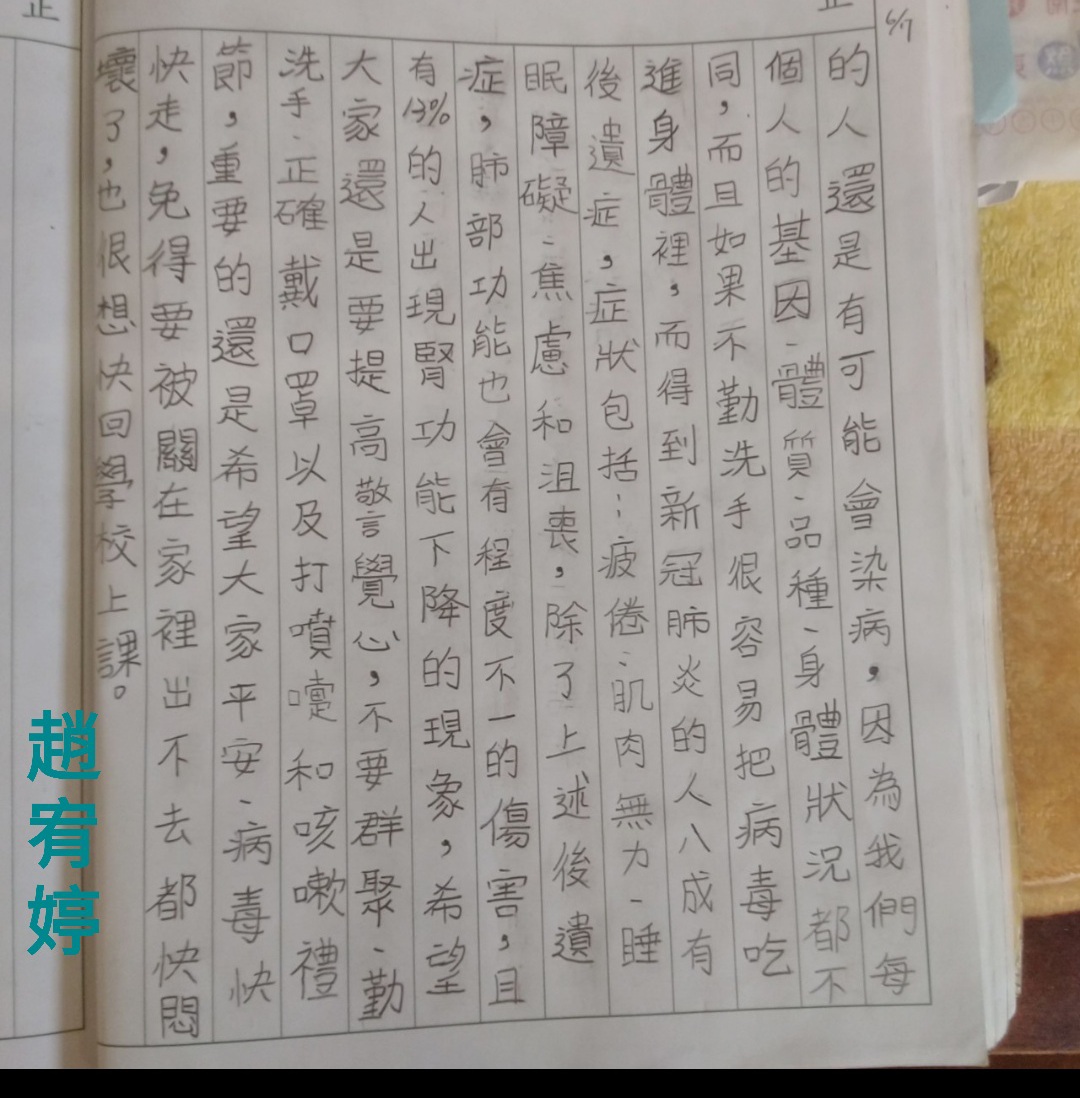 6/7
的人還是有可能會染病，因為我們每
個人的基因、體質、品種、身體狀況都不
同，而且如果不勤洗手很容易把病毒吃
進身體裡，而得到新冠肺炎的人八成有
後遺症，症狀包括：疲倦、肌肉無力、睡
眠障礙、焦慮和沮喪，除了上述後遺
症，肺部功能也會有程度不一的傷害，且
有13%的人出現腎功能下降的現象，希望
大家還是要提高警覺心，不要群聚、勤
洗手、正確戴口罩以及打噴嚏和咳嗽禮
節，重要的還是希望大家平安、病毒快
快走，免得要被關在家裡出不去都快悶
壞了，也很想快回學校上課。
趙宥婷